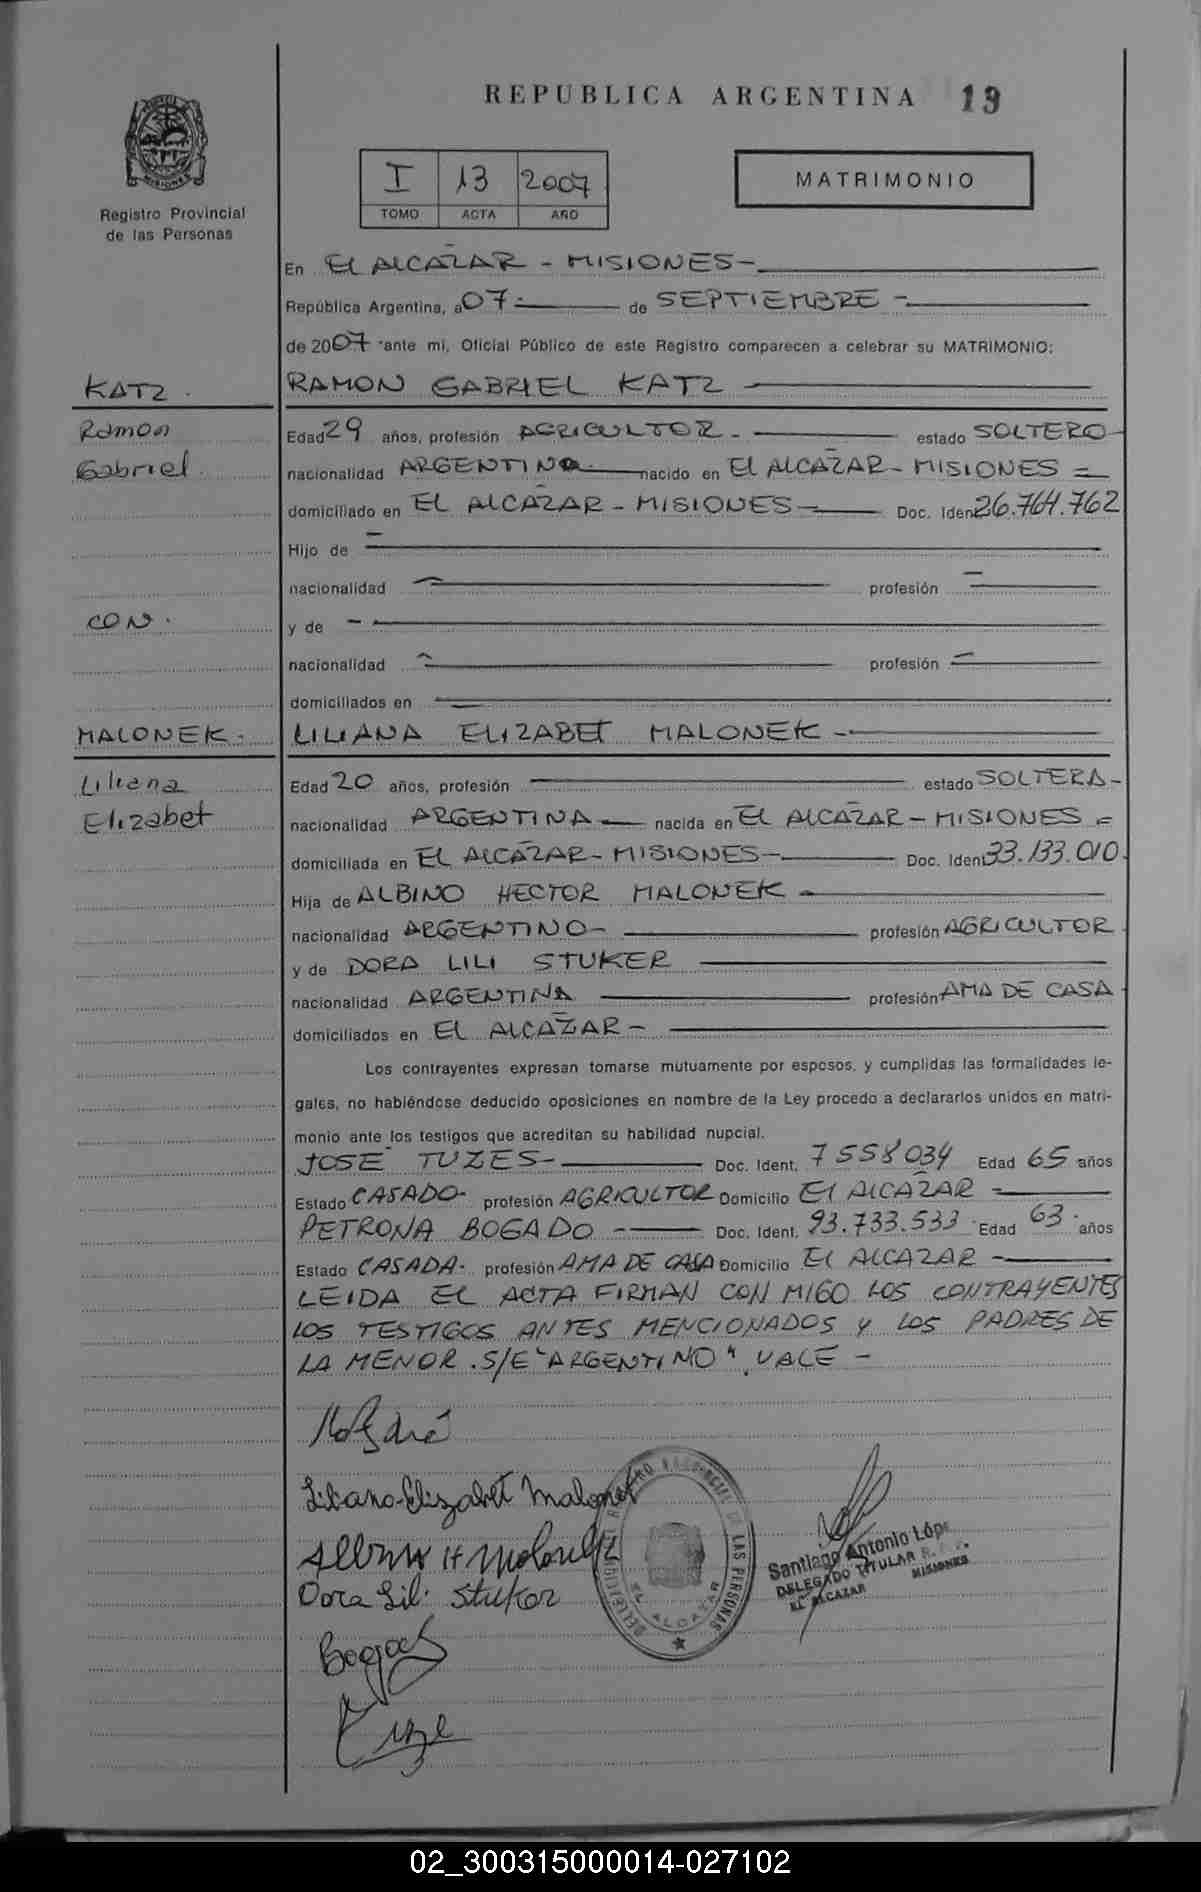 REPUBLICA ARGENTINA 13
MISIONES
Registro Provincial
de las Personas
I 13 2007
TOMO ACTA AÑO
MATRIMONIO
En EL ALCAZAR - MISIONES -
República Argentina, a 07 - de SEPTIEMBRE -
de 2007 ante mi, Oficial Público de este Registro comparecen a celebrar su MATRIMONIO:
KATZ.
RAMON GABRIEL KATZ -
Ramon
Edad 29 años, profesión AGRICULTOR - estado SOLTERO -
Gabriel.
nacionalidad ARGENTINO - nacido en EL ALCAZAR - MISIONES =
domiciliado en EL ALCAZAR - MISIONES - Doc. Iden 26.764.762
Hijo de -
nacionalidad - profesión -
CON.
y de -
nacionalidad - profesión -
domiciliados en -
MALONEK.
LILIANA ELIZABET MALONEK -
Liliana
Edad 20 años, profesión - estado SOLTERA -
Elizabet
nacionalidad ARGENTINA - nacida en EL ALCAZAR - MISIONES =
domiciliada en EL ALCAZAR - MISIONES - Doc. Iden 33.133.010
Hija de ALBINO HECTOR MALONEK -
nacionalidad ARGENTINO - profesión AGRICULTOR
y de DORA LILI STUKER
nacionalidad ARGENTINA profesión AMA DE CASA
domiciliados en EL ALCAZAR -
Los contrayentes expresan tomarse mutuamente por esposos, y cumplidas las formalidades le-
gales, no habiéndose deducido oposiciones en nombre de la Ley procedo a declararlos unidos en matri-
monio ante los testigos que acreditan su habilidad nupcial.
JOSE TUZES - Doc. Ident. 7558034 Edad 65 años
Estado CASADO - profesión AGRICULTOR Domicilio El ALCAZAR -
PETRONA BOGADO - Doc. Ident. 93.733.533 Edad 63 años
Estado CASADA - profesión AMA DE CASA Domicilio El ALCAZAR -
LEIDA EL ACTA FIRMAN CON MIGO LOS CONTRAYENTES
LOS TESTIGOS ANTES MENCIONADOS y LOS PADRES DE
LA MENOR. S/E "ARGENTINO" VALE -
Liliana Elizabet Malonek
Albino H Malonek
Dora Lili Stuker
LAS PERSONAS
EL ALCAZAR
Santiago Antonio Lópe
DELEGADO TITULAR R.
EL ALCAZAR MISIONES
02_300315000014-027102